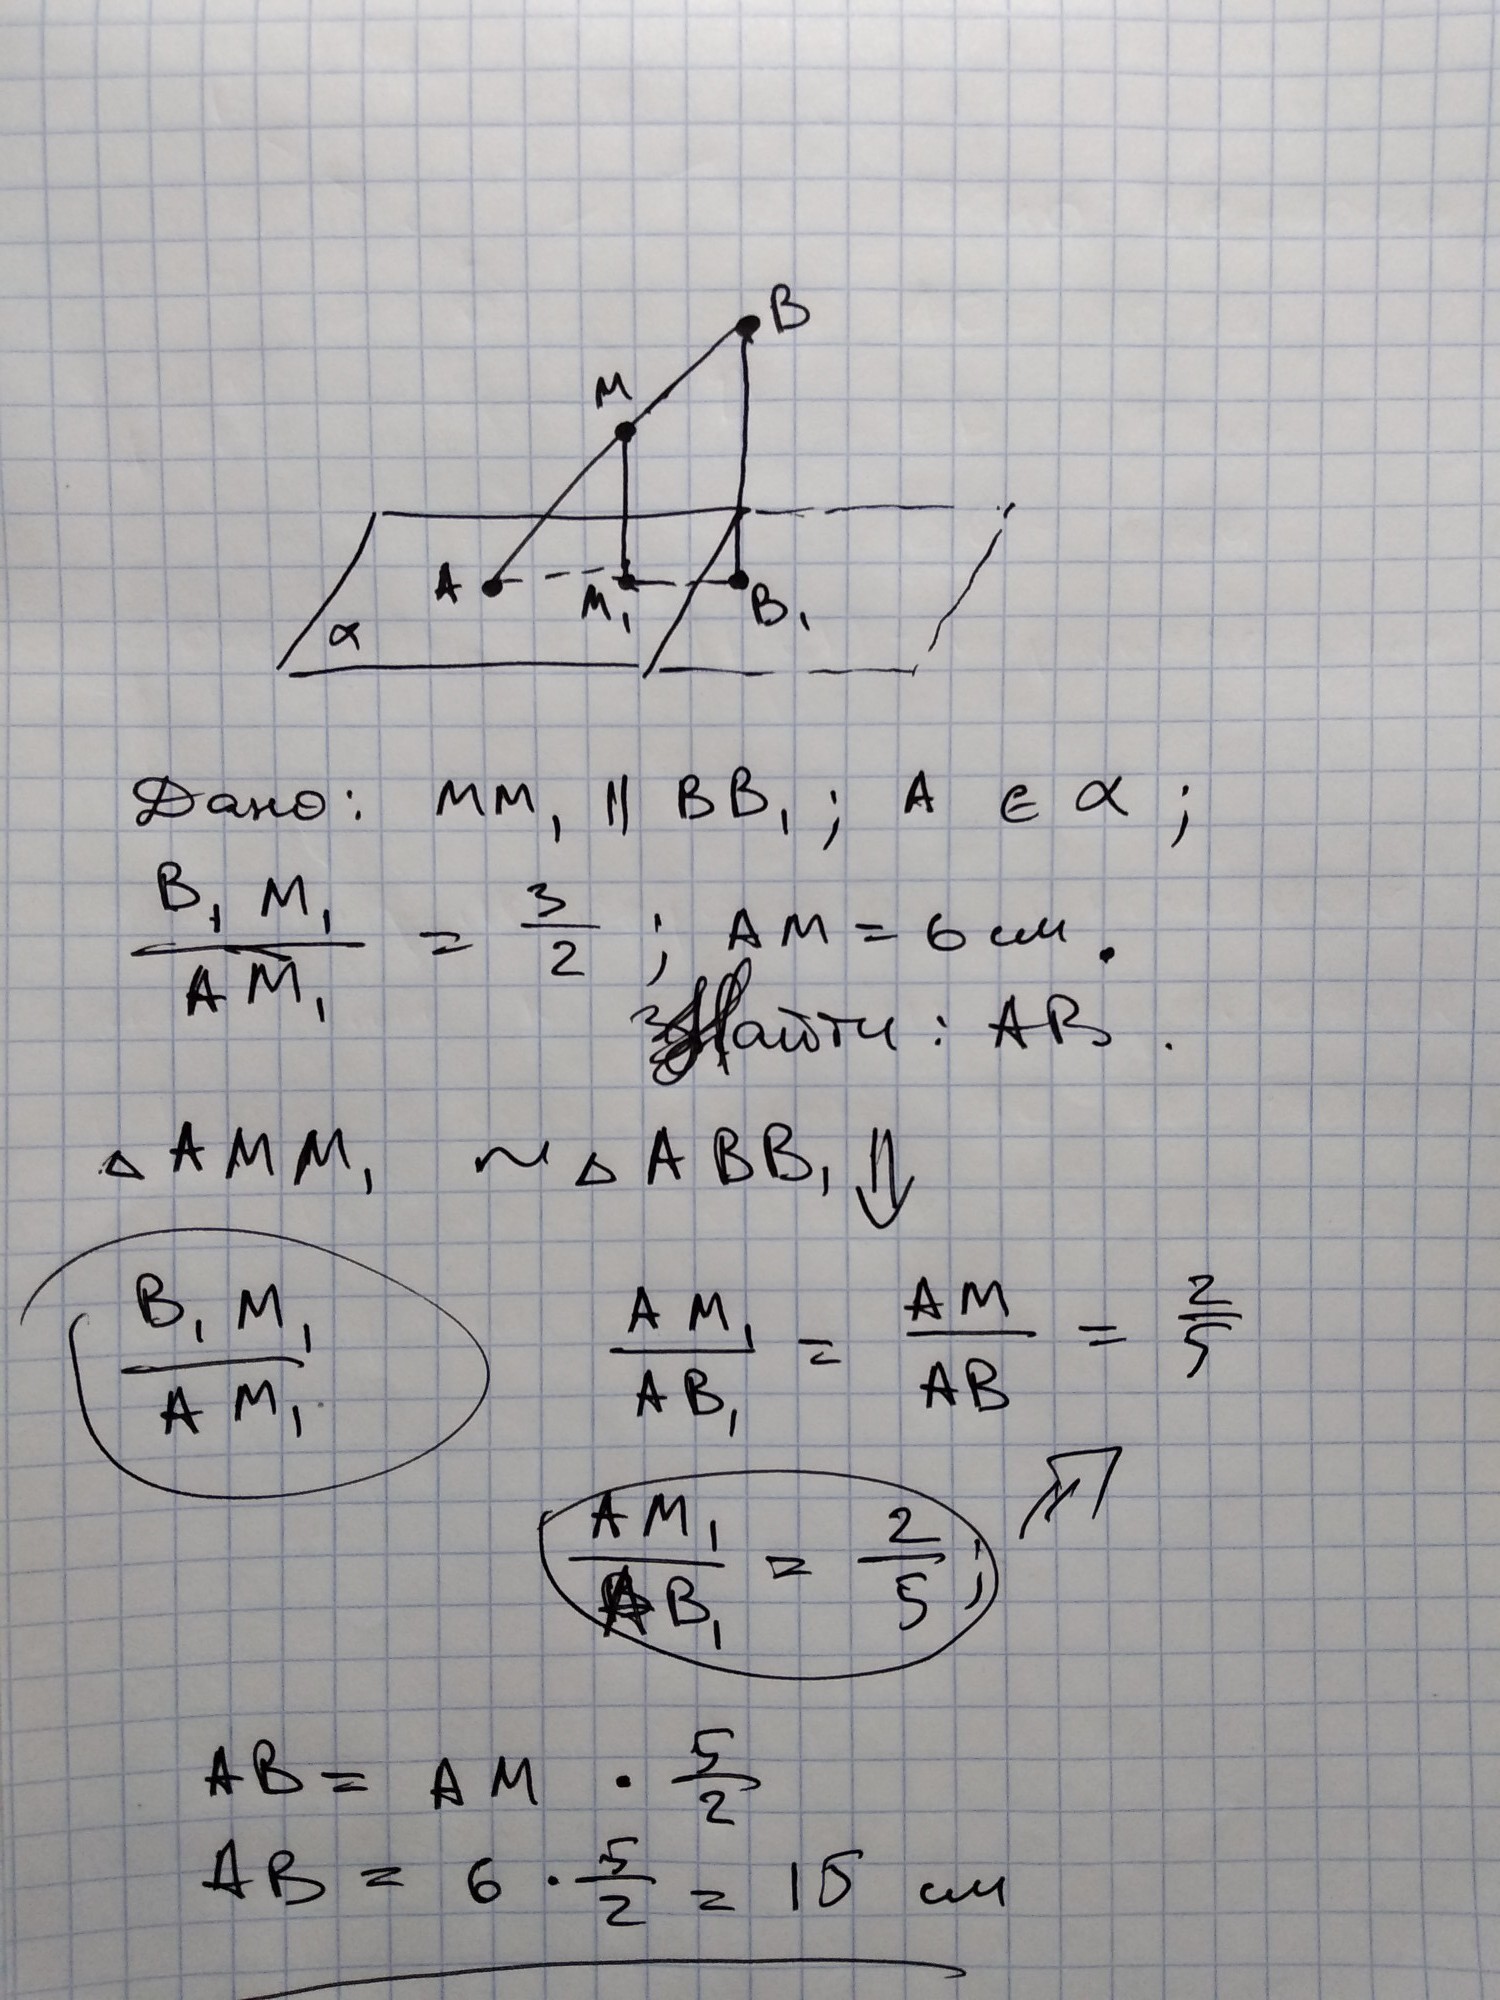 B
M
A
M₁
B₁
α
Дано: MM₁ || BB₁; A ∈ α;
B₁M₁/AM₁ = 3/2; AM = 6 см.
Найти: AB.
△AMM₁ ~ △ABB₁ ⇓
B₁M₁/AM₁
AM₁/AB₁ = AM/AB = 2/5
AM₁/AB₁ = 2/5;
AB = AM · 5/2
AB = 6 · 5/2 = 15 см